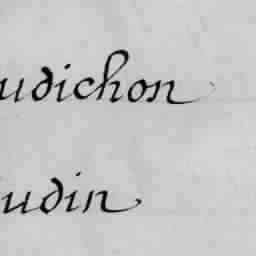 udichon
udin